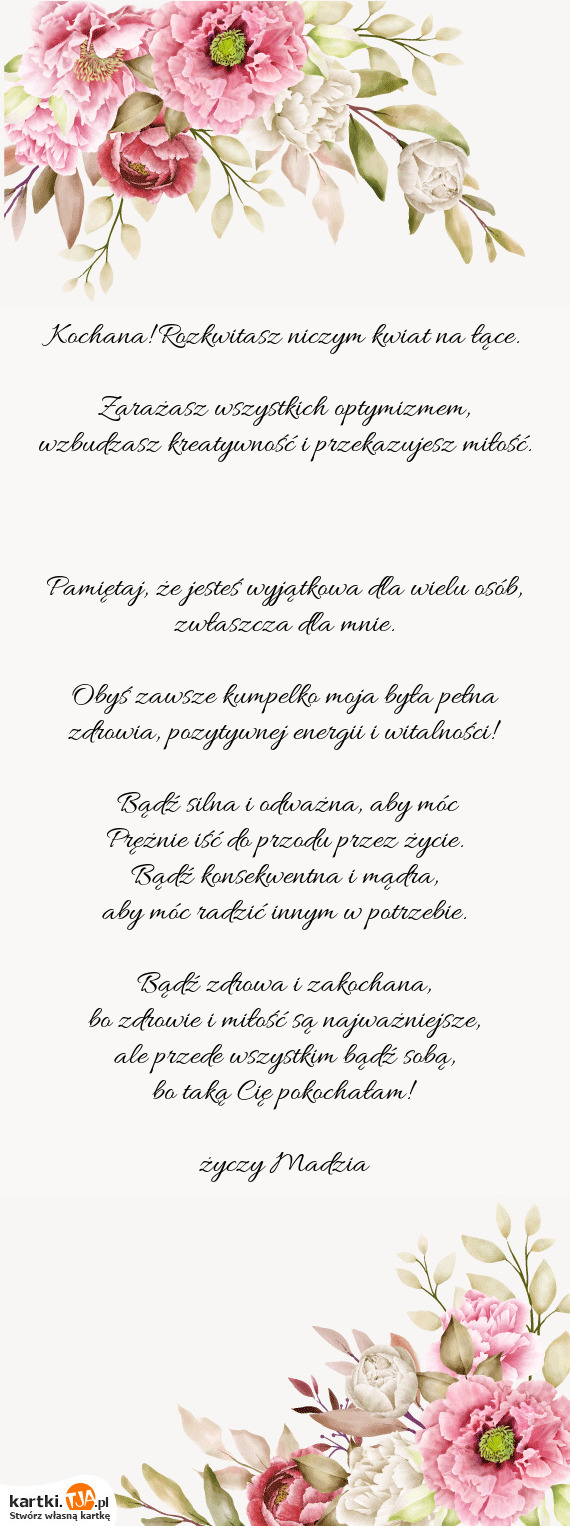 Kochana! Rozkwitasz niczym kwiat na łące.
Zarażasz wszystkich optymizmem,
wzbudzasz kreatywność i przekazujesz miłość.
Pamiętaj, że jesteś wyjątkowa dla wielu osób,
zwłaszcza dla mnie.
Obyś zawsze kumpelko moja była pełna
zdrowia, pozytywnej energii i witalności!
Bądź silna i odważna, aby móc
Prężnie iść do przodu przez życie.
Bądź konsekwentna i mądra,
aby móc radzić innym w potrzebie.
Bądź zdrowa i zakochana,
bo zdrowie i miłość są najważniejsze,
ale przede wszystkim bądź sobą,
bo taką Cię pokochałam!
życzy Madzia
kartki.TJA.pl
Stwórz własną kartkę